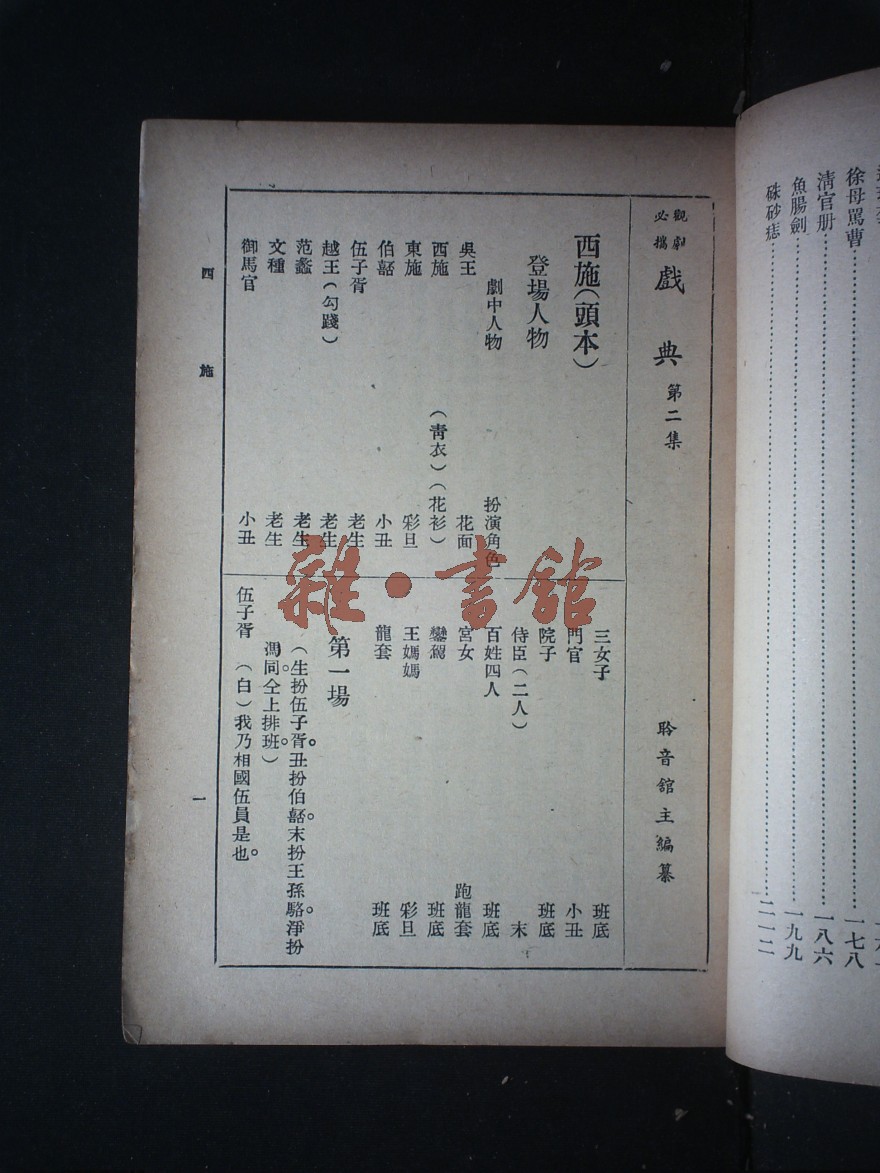 徐母罵曹…………一七八
清官册…………一八六
魚腸劍…………一九九
硃砂痣…………二一二
觀劇必攜 戲典 第二集
聆音館主編纂
西施(頭本)
登場人物
劇中人物 扮演角色
吳王 花面
西施 (青衣)(花衫)
東施 彩旦
伯嚭 小丑
伍子胥 老生
越王(勾踐) 老生
范蠡 老生
文種 老生
御馬官 小丑
三女子 班底
門官 小丑
院子 班底
侍臣(二人) 末
百姓四人 班底
宮女 跑龍套
鑾駕 班底
王媽媽 彩旦
龍套 班底
第一場
(生扮伍子胥。丑扮伯嚭。末扮王孫駱。淨扮
馮同。仝上排班。)
伍子胥 (白)我乃相國伍員是也。
西施
一
雜·書館